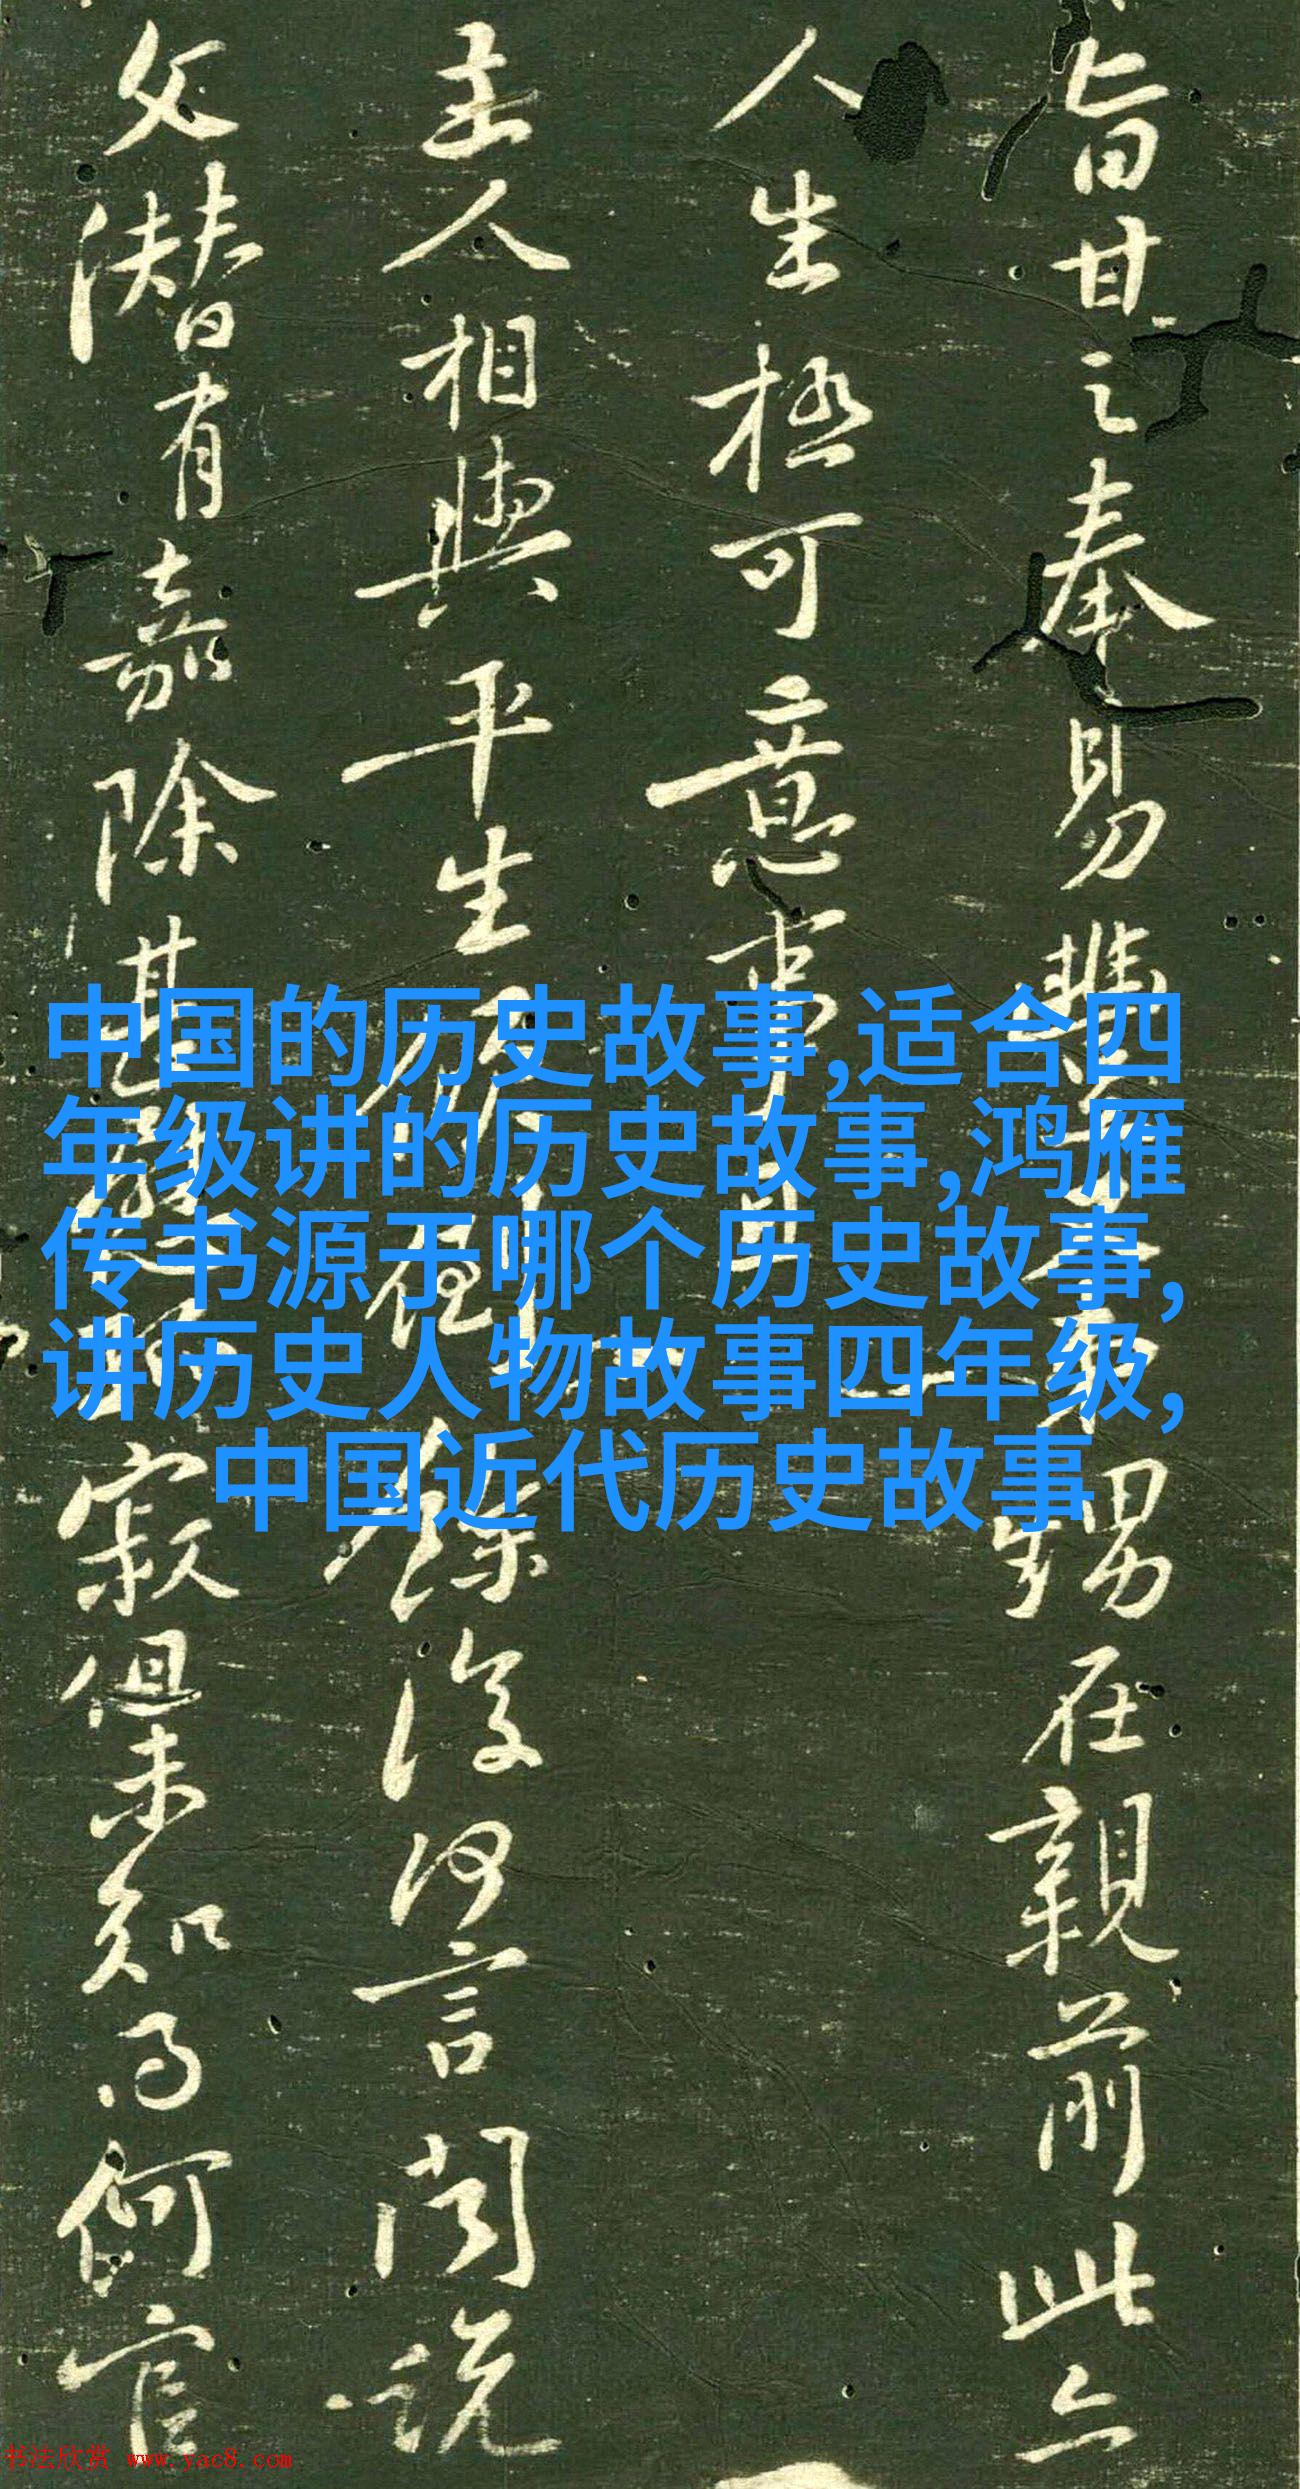 中国的历史故事,适合四
年级讲的历史故事,鸿雁
传书源于哪个历史故事,
讲历史人物故事四年级,
中国近代历史故事
旨甘之奉易 甥在親前此亦
人生極可意事
主人相與平生 餘復何言閏說
父潜有嘉除甚 寂但未知得何官
书法欣赏 www.yac8.com